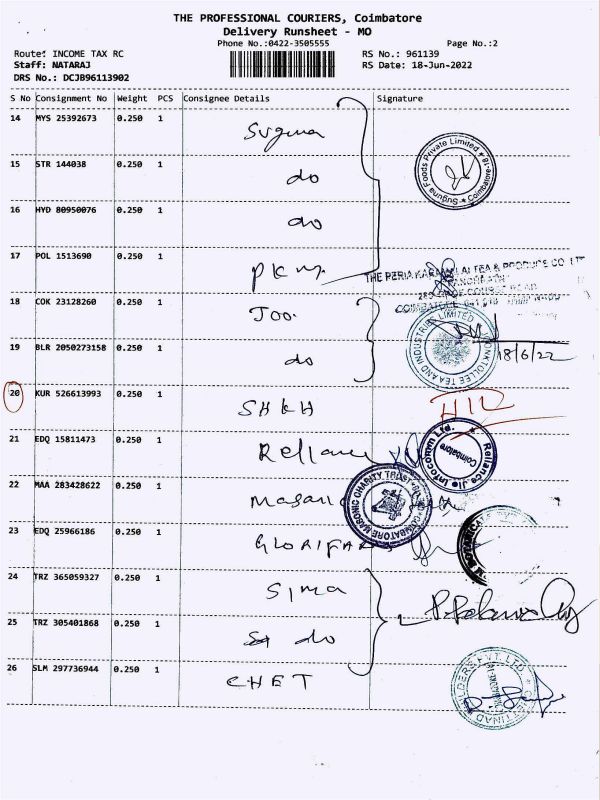 THE PROFESSIONAL COURIERS, Coimbatore
Delivery Runsheet - MO
Phone No.:0422-3505555 Page No.:2
Route: INCOME TAX RC RS No.: 961139
Staff: NATARAJ RS Date: 18-Jun-2022
DRS No.: DCJB96113902
S No Consignment No Weight PCS Consignee Details Signature
14 MYS 25392673 0.250 1 Suguna
Suguna Foods Private Limited Coimbatore-18
15 STR 144038 0.250 1 do
16 HYD 80950076 0.250 1 do
17 POL 1513690 0.250 1
THE PERIA KARAMALAI TEA & PRODUCE CO. LTD
18 COK 23128260 0.250 1 Joo.
TEA AND INDUSTRIES LIMITED
19 BLR 2050273158 0.250 1 do 18/6/22
20 KUR 526613993 0.250 1 SHKH
21 EDQ 15811473 0.250 1 Reliance
Reliance Jio Infocomm Ltd. Coimbatore
22 MAA 283428622 0.250 1
COIMBATORE MASONIC CHARITY TRUST
23 EDQ 25966186 0.250 1
24 TRZ 365059327 0.250 1 Sima
25 TRZ 305401868 0.250 1 do
26 SLM 297736944 0.250 1 CHET